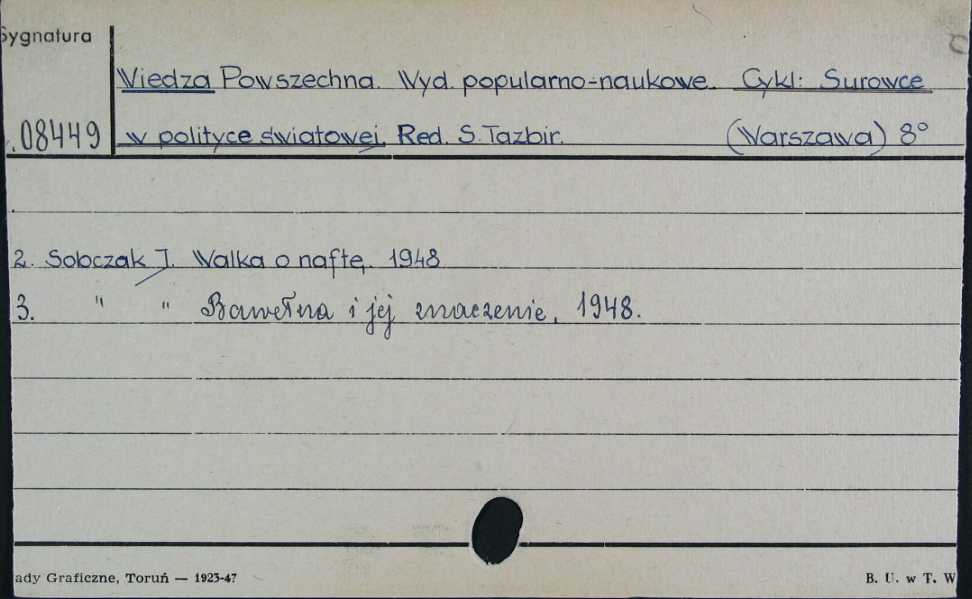 Sygnatura
Wiedza Powszechna. Wyd. popularno-naukowe. Cykl: Surowce
.08449 w polityce światowej. Red. S. Tazbir. (Warszawa) 8°
2. Sobczak J. Walka o naftę. 1948
3. " " Bawełna i jej znaczenie. 1948.
ady Graficzne, Toruń — 1923-47 B. U. w T. W